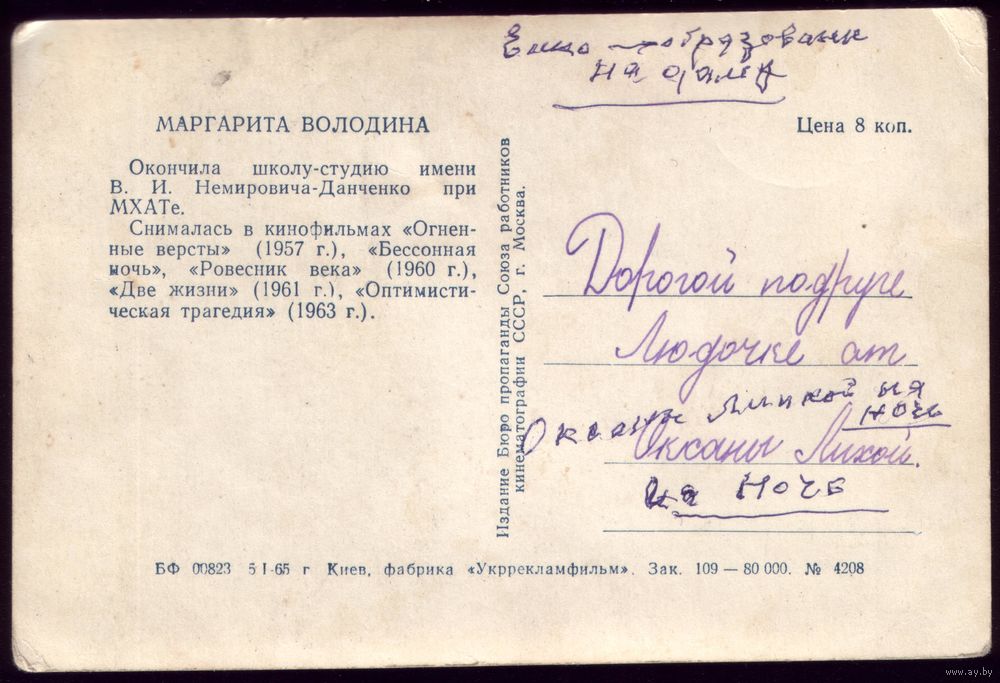 МАРГАРИТА ВОЛОДИНА
Окончила школу-студию имени
В. И. Немировича-Данченко при
МХАТе.
Снималась в кинофильмах «Огнен-
ные версты» (1957 г.), «Бессонная
ночь», «Ровесник века» (1960 г.),
«Две жизни» (1961 г.), «Оптимисти-
ческая трагедия» (1963 г.).
Издание Бюро пропаганды Союза работников
кинематографии СССР, г. Москва.
на
Цена 8 коп.
Дорогой подруге
Людочке от
Оксаны на
ночь
Оксаны Лихой.
на ночь
БФ 00823 5 I-65 г Киев, фабрика «Укррекламфильм». Зак. 109 — 80 000. № 4208
www.ay.by